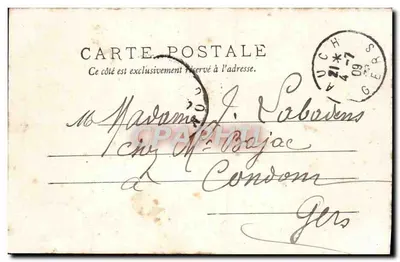 CARTE POSTALE
Ce côté est exclusivement réservé à l'adresse.
AUCH GERS
21 * 4 -7 09
Madame J. Labadens
chez Mr Bajac
à Condom
Gers